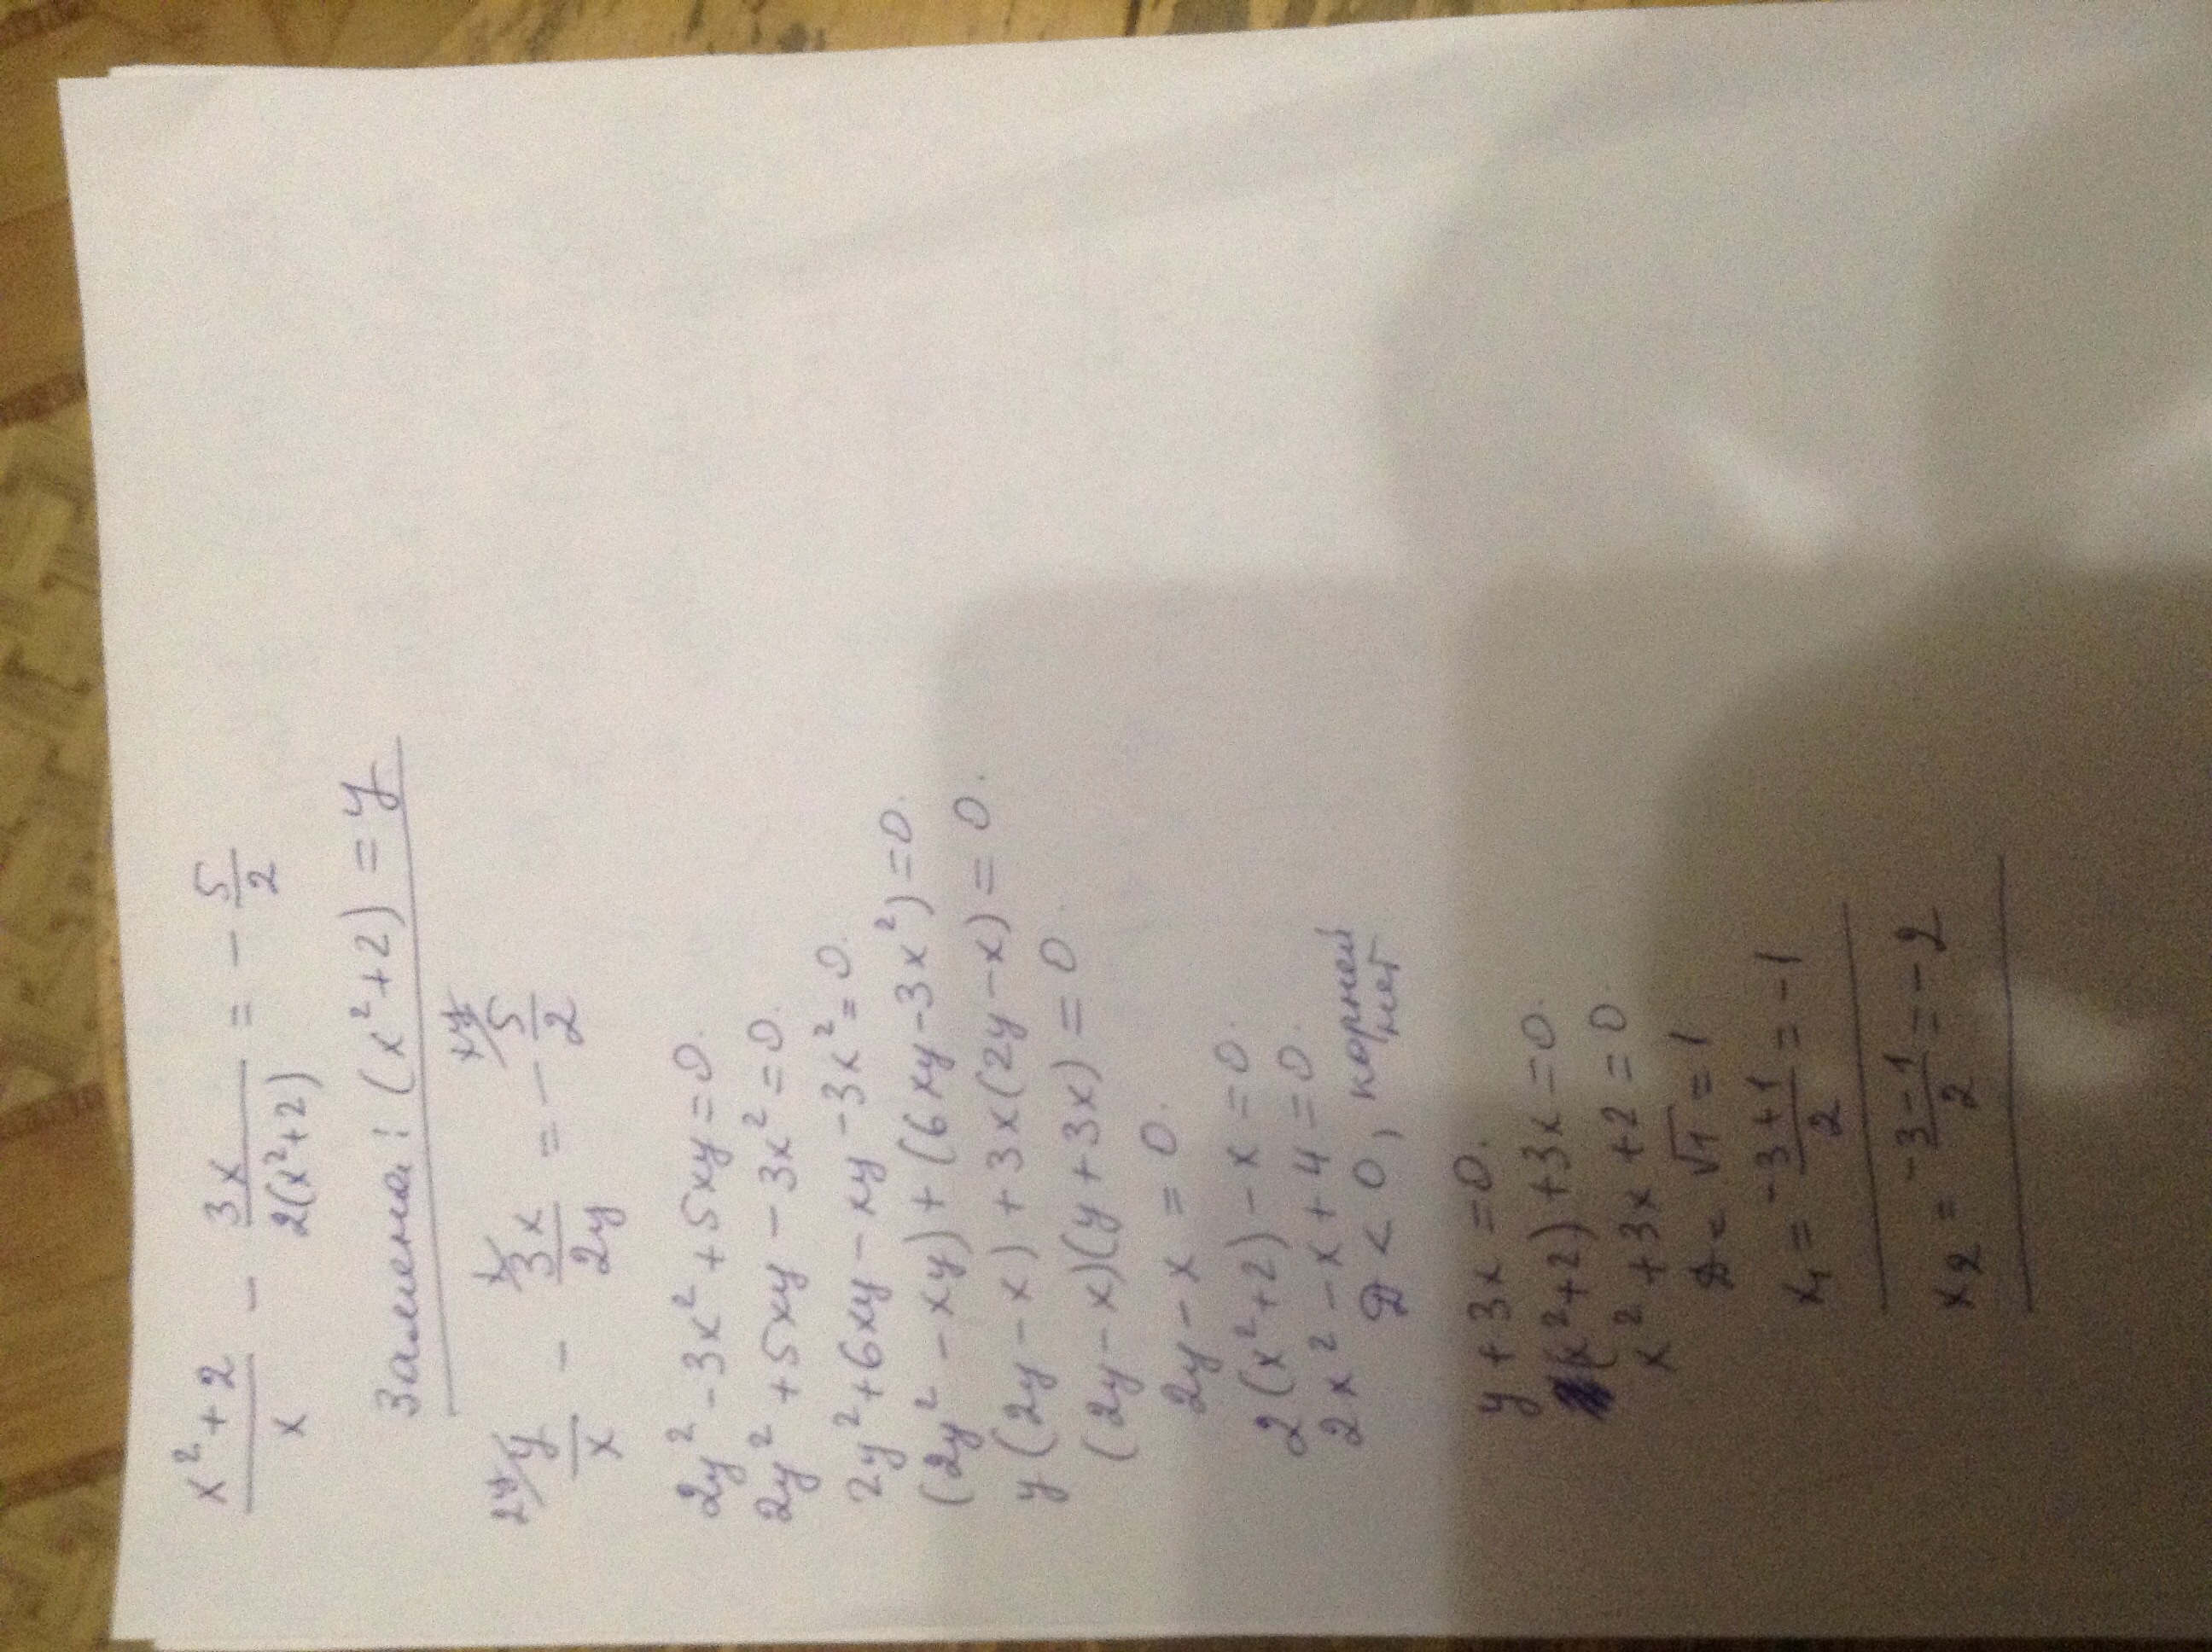 x² + 2 / x − 3x / 2(x²+2) = − 5/2
Замена: (x² + 2) = y
2y/ y/x − x/ 3x/2y = − xy/ 5/2
2y² − 3x² + 5xy = 0.
2y² + 5xy − 3x² = 0.
2y² + 6xy − xy − 3x² = 0.
(2y² − xy) + (6xy − 3x²) = 0.
y(2y − x) + 3x(2y − x) = 0.
(2y − x)(y + 3x) = 0.
2y − x = 0.
2(x² + 2) − x = 0.
2x² − x + 4 = 0.
D < 0, корней
нет
y + 3x = 0.
(x² + 2) + 3x = 0.
x² + 3x + 2 = 0
D = √1 = 1
x₁ = −3+1 / 2 = −1
x₂ = −3−1 / 2 = −2